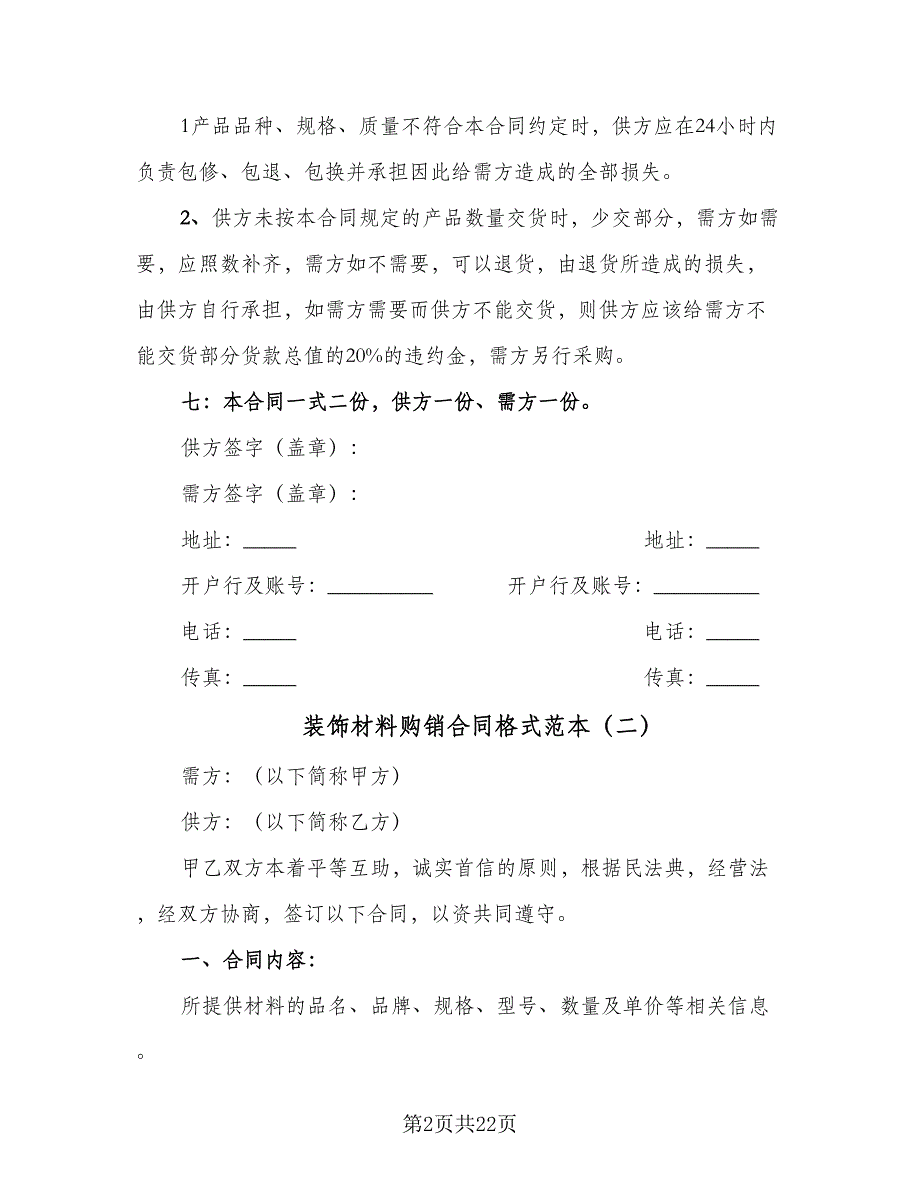 1产品品种、规格、质量不符合本合同约定时，供方应在24小时内
负责包修、包退、包换并承担因此给需方造成的全部损失。
2、供方未按本合同规定的产品数量交货时，少交部分，需方如需
要，应照数补齐，需方如不需要，可以退货，由退货所造成的损失，
由供方自行承担，如需方需要而供方不能交货，则供方应该给需方不
能交货部分货款总值的20%的违约金，需方另行采购。
七：本合同一式二份，供方一份、需方一份。
供方签字（盖章）：
需方签字（盖章）：
地址：_____ 地址：_____
开户行及账号：__________ 开户行及账号：__________
电话：_____ 电话：_____
传真：_____ 传真：_____
装饰材料购销合同格式范本（二）
需方：（以下简称甲方）
供方：（以下简称乙方）
甲乙双方本着平等互助，诚实首信的原则，根据民法典，经营法
，经双方协商，签订以下合同，以资共同遵守。
一、合同内容：
所提供材料的品名、品牌、规格、型号、数量及单价等相关信息
。
第2页共22页